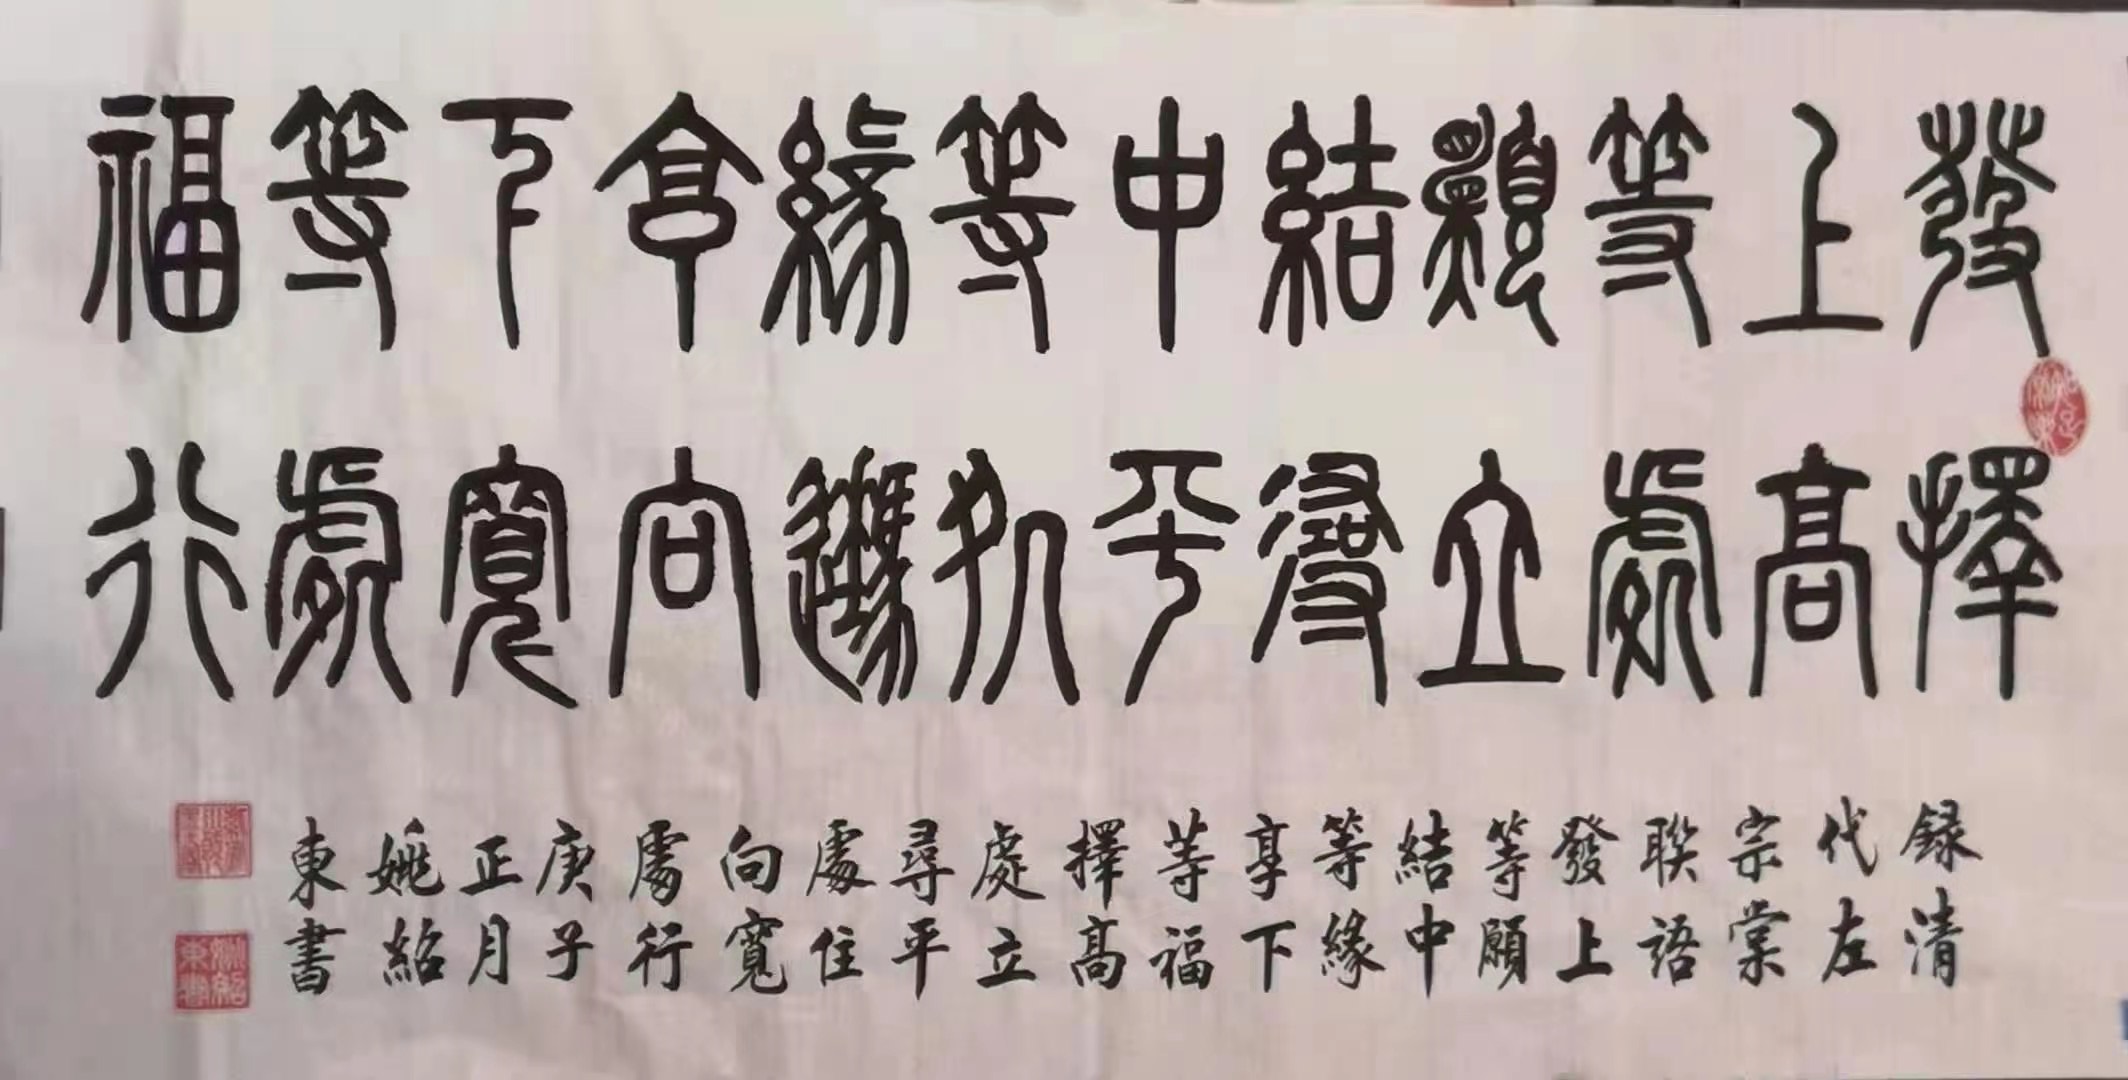 發上等願結中等緣享下等福
擇高處立尋平処住向寬處行
録清
代左
宗棠
聯語
發上
等願
結中
等緣
享下
等福
擇高
處立
尋平
處住
向寬
處行
庚子
正月
姚紹
東書